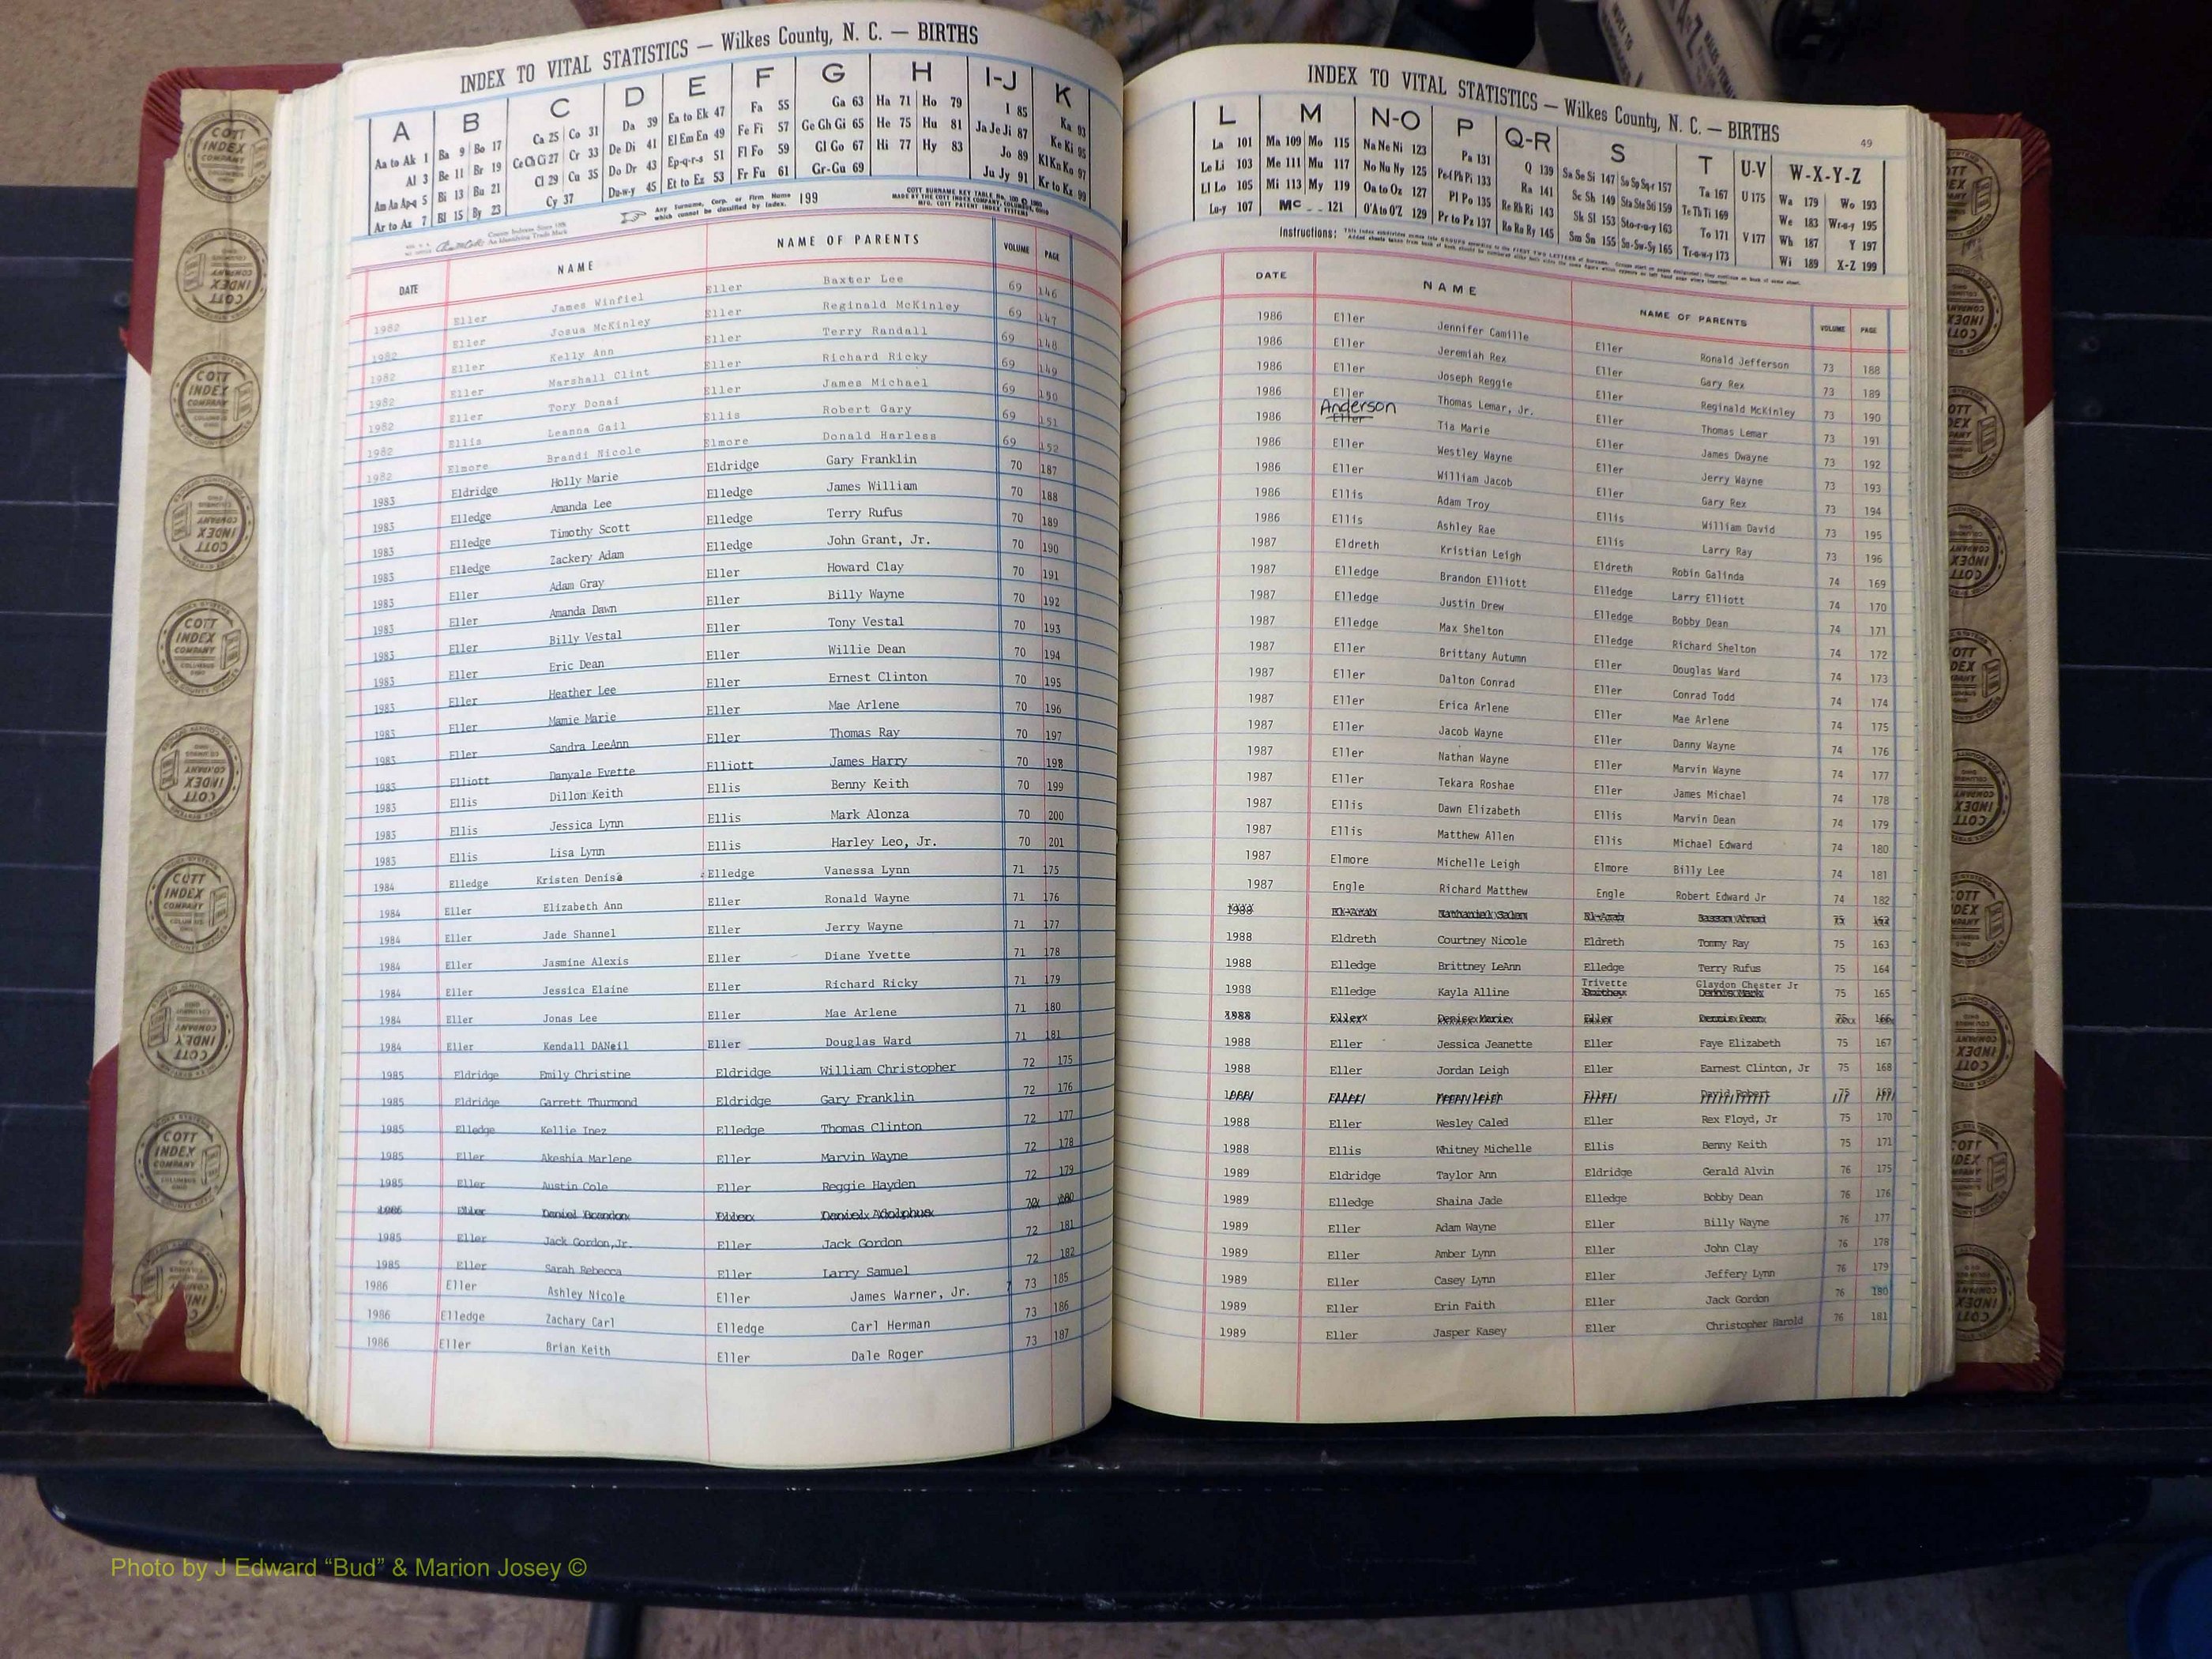 INDEX TO VITAL STATISTICS — Wilkes County, N. C. — BIRTHS
A B C D E F G H I-J K
Aa to Ak 1 Ba 9 Bo 17 Ca 25 Co 31 Da 39 Ea to Ek 47 Fa 55 Ga 63 Ha 71 Ho 79 I 85 Ka 93
Al 3 Be 11 Br 19 Ce Ch Ci 27 Cr 33 De Di 41 El Em En 49 Fe Fi 57 Ge Gh Gi 65 He 75 Hu 81 Ja Je Ji 87 Ke Ki 95
Am An Ap-q 5 Bi 13 Bu 21 Cl 29 Cu 35 Do Dr 43 Ep-q-r-s 51 Fl Fo 59 Gl Go 67 Hi 77 Hy 83 Jo 89 Kl Kn Ko 97
Ar to Az 7 Bl 15 By 23 Cy 37 Du-w-y 45 Et to Ez 53 Fr Fu 61 Gr-Gu 69 Ju Jy 91 Kr to Kz 99
Any Surname, Corp. or Firm Name which cannot be classified by Index. 199
DATE NAME NAME OF PARENTS VOLUME PAGE
1982 Eller James Winfiel Eller Baxter Lee 69 146
1982 Eller Josua McKinley Eller Reginald McKinley 69 147
1982 Eller Kelly Ann Eller Terry Randall 69 148
1982 Eller Marshall Clint Eller Richard Ricky 69 149
1982 Eller Tory Donai Eller James Michael 69 150
1982 Ellis Leanna Gail Ellis Robert Gary 69 151
1982 Elmore Brandi Nicole Elmore Donald Harless 69 152
1983 Eldridge Holly Marie Eldridge Gary Franklin 70 187
1983 Elledge Amanda Lee Elledge James William 70 188
1983 Elledge Timothy Scott Elledge Terry Rufus 70 189
1983 Elledge Zackery Adam Elledge John Grant, Jr. 70 190
1983 Eller Adam Gray Eller Howard Clay 70 191
1983 Eller Amanda Dawn Eller Billy Wayne 70 192
1983 Eller Billy Vestal Eller Tony Vestal 70 193
1983 Eller Eric Dean Eller Willie Dean 70 194
1983 Eller Heather Lee Eller Ernest Clinton 70 195
1983 Eller Mamie Marie Eller Mae Arlene 70 196
1983 Eller Sandra LeeAnn Eller Thomas Ray 70 197
1983 Elliott Danyale Evette Elliott James Harry 70 198
1983 Ellis Dillon Keith Ellis Benny Keith 70 199
1983 Ellis Jessica Lynn Ellis Mark Alonza 70 200
1983 Ellis Lisa Lynn Ellis Harley Leo, Jr. 70 201
1984 Elledge Kristen Denise Elledge Vanessa Lynn 71 175
1984 Eller Elizabeth Ann Eller Ronald Wayne 71 176
1984 Eller Jade Shannel Eller Jerry Wayne 71 177
1984 Eller Jasmine Alexis Eller Diane Yvette 71 178
1984 Eller Jessica Elaine Eller Richard Ricky 71 179
1984 Eller Jonas Lee Eller Mae Arlene 71 180
1984 Eller Kendall DANeil Eller Douglas Ward 71 181
1985 Eldridge Emily Christine Eldridge William Christopher 72 175
1985 Eldridge Garrett Thurmond Eldridge Gary Franklin 72 176
1985 Elledge Kellie Inez Elledge Thomas Clinton 72 177
1985 Eller Akeshia Marlene Eller Marvin Wayne 72 178
1985 Eller Austin Cole Eller Reggie Hayden 72 179
Daniel Brandon
1985 Eller Jack Gordon, Jr. Eller Jack Gordon 72 181
1985 Eller Sarah Rebecca Eller Larry Samuel 72 182
1986 Eller Ashley Nicole Eller James Warner, Jr. 73 185
1986 Elledge Zachary Carl Elledge Carl Herman 73 186
1986 Eller Brian Keith Eller Dale Roger 73 187
INDEX TO VITAL STATISTICS — Wilkes County, N. C. — BIRTHS
49
L M N-O P Q-R S T U-V W-X-Y-Z
La 101 Ma 109 Mo 115 Na Ne Ni 123 Pa 131 Q 139 Sa Se Si 147 So Sp Sq-r 157 Ta 167 U 175 Wa 179 Wo 193
Le Li 103 Me 111 Mu 117 No Nu Ny 125 Pe-f Ph Pi 133 Ra 141 Sc Sh 149 Sta Ste Sti 159 Te Th Ti 169 We 183 Wr-u-y 195
Ll Lo 105 Mi 113 My 119 Oa to Oz 127 Pl Po 135 Re Rh Ri 143 Sk Sl 153 Sto-r-u-y 163 To 171 V 177 Wh 187 Y 197
Lu-y 107 Mc 121 O'A to O'Z 129 Pr to Pz 137 Ro Ru Ry 145 Sm Sn 155 Su-Sw-Sy 165 Tr-u-w-y 173 Wi 189 X-Z 199
Instructions:
DATE NAME NAME OF PARENTS VOLUME PAGE
1986 Eller Jennifer Camille Eller Ronald Jefferson 73 188
1986 Eller Jeremiah Rex Eller Gary Rex 73 189
1986 Eller Joseph Reggie Eller Reginald McKinley 73 190
1986 Eller Thomas Lemar, Jr. Eller Thomas Lemar 73 191
Anderson
Eller Tia Marie Eller James Dwayne 73 192
1986 Eller Westley Wayne Eller Jerry Wayne 73 193
1986 Eller William Jacob Eller Gary Rex 73 194
1986 Ellis Adam Troy Ellis William David 73 195
1986 Ellis Ashley Rae Ellis Larry Ray 73 196
1987 Eldreth Kristian Leigh Eldreth Robin Galinda 74 169
1987 Elledge Brandon Elliott Elledge Larry Elliott 74 170
1987 Elledge Justin Drew Elledge Bobby Dean 74 171
1987 Elledge Max Shelton Elledge Richard Shelton 74 172
1987 Eller Brittany Autumn Eller Douglas Ward 74 173
1987 Eller Dalton Conrad Eller Conrad Todd 74 174
1987 Eller Erica Arlene Eller Mae Arlene 74 175
1987 Eller Jacob Wayne Eller Danny Wayne 74 176
1987 Eller Nathan Wayne Eller Marvin Wayne 74 177
1987 Eller Tekara Roshae Eller James Michael 74 178
1987 Ellis Dawn Elizabeth Ellis Marvin Dean 74 179
1987 Ellis Matthew Allen Ellis Michael Edward 74 180
1987 Elmore Michelle Leigh Elmore Billy Lee 74 181
1987 Engle Richard Matthew Engle Robert Edward Jr 74 182
1988 El-Arab 75 162
1988 Eldreth Courtney Nicole Eldreth Tommy Ray 75 163
1988 Elledge Brittney LeAnn Elledge Terry Rufus 75 164
Trivette Glaydon Chester Jr
1988 Elledge Kayla Alline 75 165
1988 Eller Denise Marie Eller Dennis Dean 75 166
1988 Eller Jessica Jeanette Eller Faye Elizabeth 75 167
1988 Eller Jordan Leigh Eller Earnest Clinton, Jr 75 168
David Robert 75 169
1988 Eller Wesley Caled Eller Rex Floyd, Jr 75 170
1988 Ellis Whitney Michelle Ellis Benny Keith 75 171
1989 Eldridge Taylor Ann Eldridge Gerald Alvin 76 175
1989 Elledge Shaina Jade Elledge Bobby Dean 76 176
1989 Eller Adam Wayne Eller Billy Wayne 76 177
1989 Eller Amber Lynn Eller John Clay 76 178
1989 Eller Casey Lynn Eller Jeffery Lynn 76 179
1989 Eller Erin Faith Eller Jack Gordon 76 180
1989 Eller Jasper Kasey Eller Christopher Harold 76 181
COTT INDEX COMPANY
Photo by J Edward “Bud” & Marion Josey ©